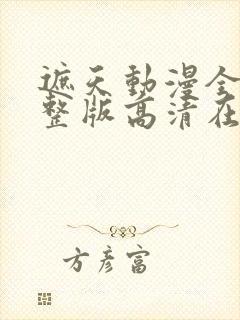 遮天動漫全
整版高清在
方彥富